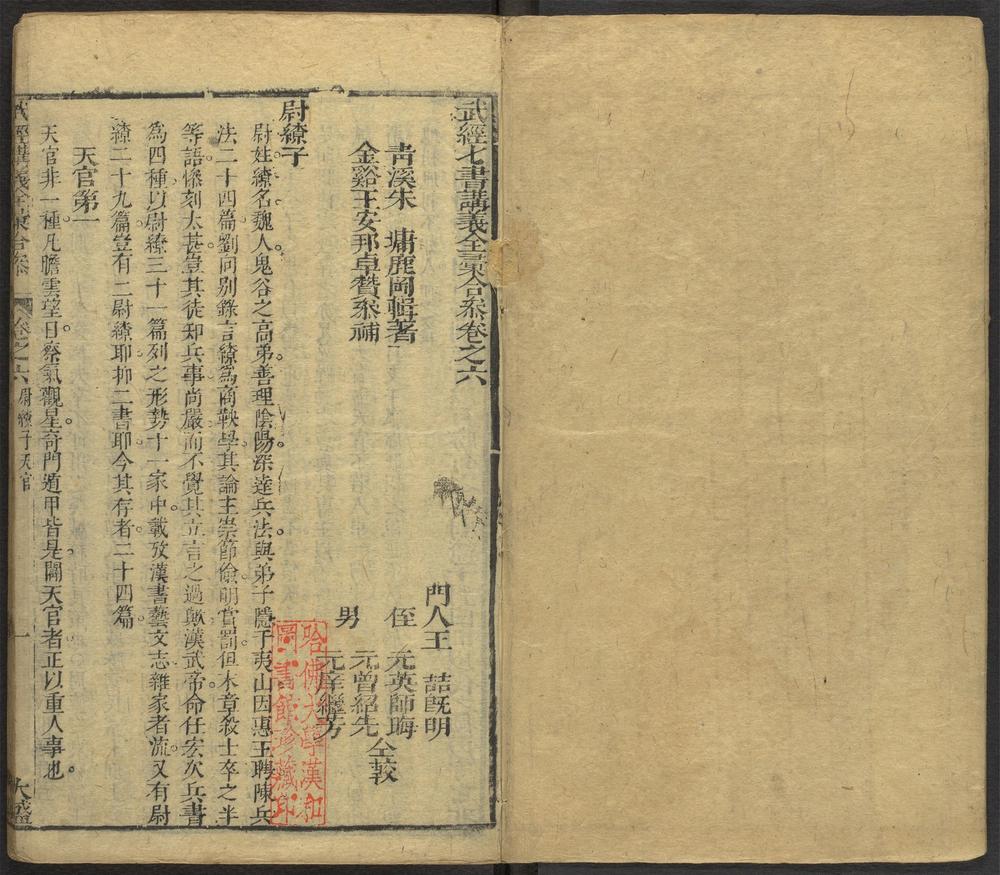 武經七書講義全彙合參卷之六
青溪朱 墉鹿岡輯著
金谿王安邦卓贊叅補
門人王 喆旣明
侄 元英師晦
男 元曾紹先
元𡴞繼芳
仝較
尉繚子
尉姓繚名魏人鬼谷之高弟善理陰陽深達兵法與弟子隱于夷山因惠王聘陳兵
法二十四篇劉向別錄言繚為商鞅學其論主崇節儉明賞罰但本章殺士卒之半
等語慘刻太甚豈其徒知兵事尚嚴而不覺其立言之過歟漢武帝命任宏次兵書
為四種以尉繚三十一篇列之形勢十一家中載攷漢書藝文志雜家者流又有尉
繚二十九篇豈有二尉繚耶抑二書耶今其存者二十四篇
天官第一
天官非一種凡瞻雲望日察氣觀星奇門遁甲皆是闢天官者正以重人事也
武經講義全彙合叅 卷之六 尉繚子天官 一 大盛
哈佛大學漢和
圖書館珍藏印